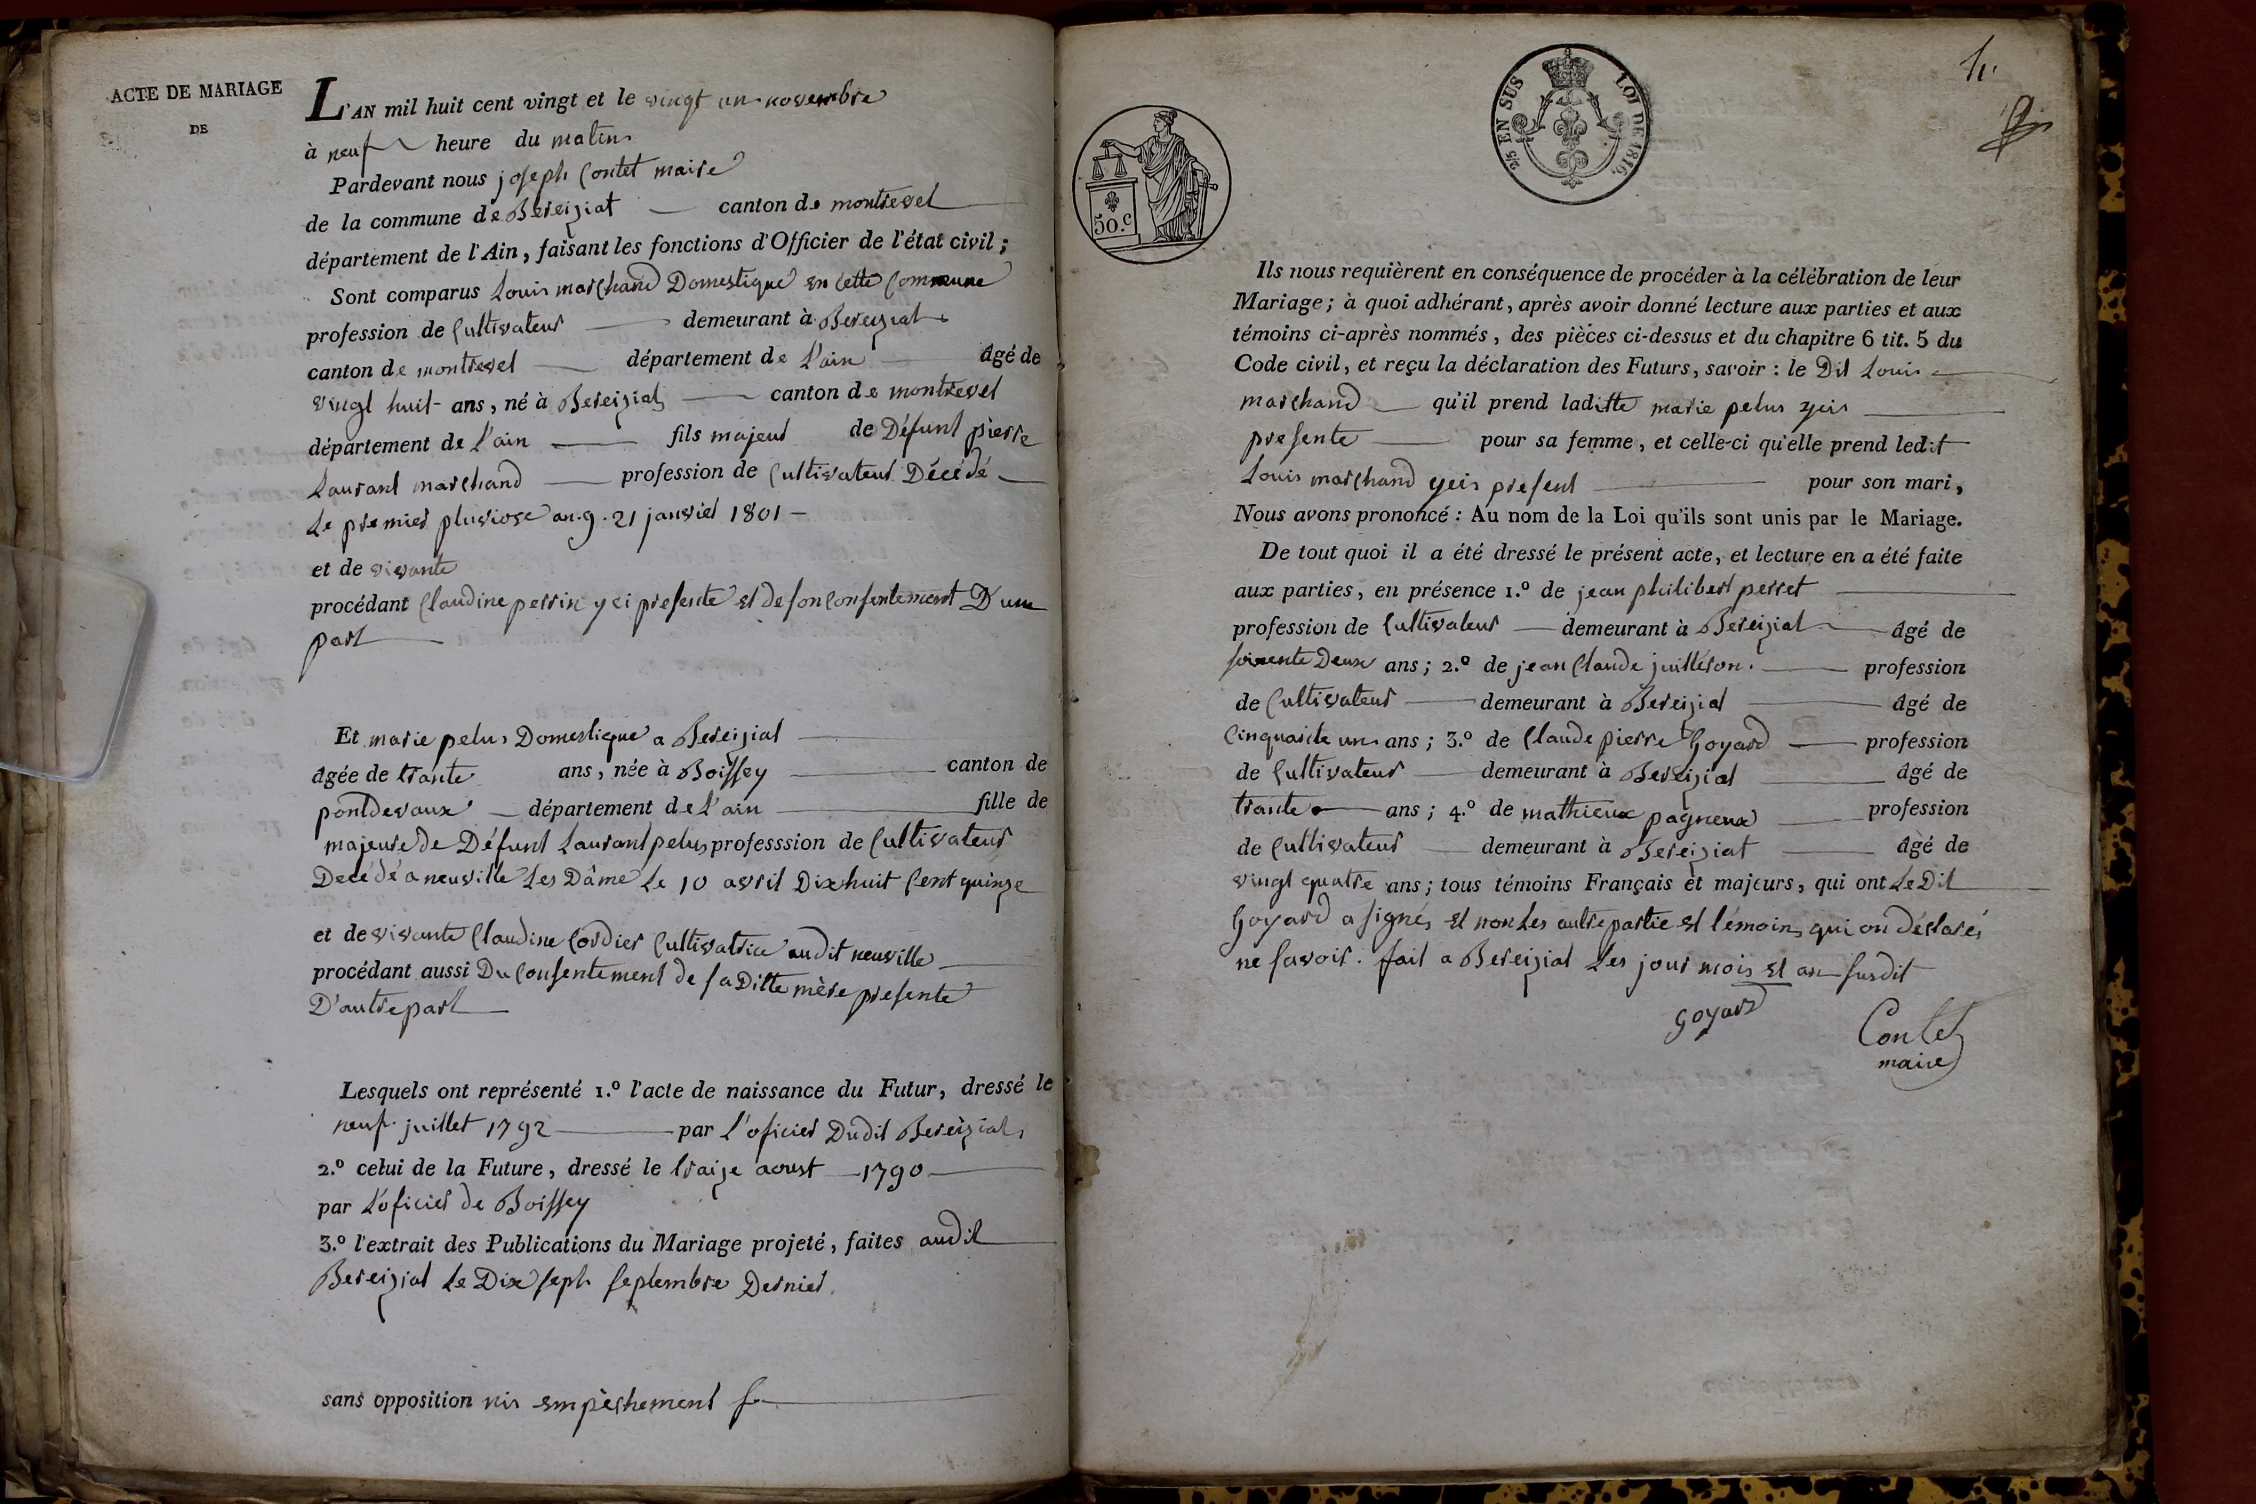 ACTE DE MARIAGE
DE
L'AN mil huit cent vingt et le vingt un novembre
à neuf heure du matin
Pardevant nous joseph Contet maire
de la commune de Bereiziat canton de montrevel
département de l'Ain, faisant les fonctions d'Officier de l'état civil;
Sont comparus Louis marchand Domestique en cette Commune
profession de Cultivateur demeurant à Bereiziat
canton de montrevel département de L'ain âgé de
vingt huit ans, né à Bereiziat canton de montrevel
département de L'ain fils majeur de Défunt pierre
Laurant marchand profession de Cultivateur Décédé
Le premier pluviose an. 9. 21 janvier 1801 -
et de vivante
procédant Claudine perrin yci presente et de son Consentement D'une
part
Et marie pelus Domestique a Bereiziat
âgée de trante ans, née à Boissey canton de
pontdevaux département de L'ain fille de
majeure de Défunt Laurant pelus professsion de Cultivateur
Decédé a neuville Les Dâme Le 10 avril Dixhuit Cent quinze
et de vivante Claudine Cordier Cultivatrice audit neuville
procédant aussi Du Consentement de sa Ditte mère presente
D'autre part
Lesquels ont représenté 1.º l'acte de naissance du Futur, dressé le
neuf juillet 1792 par L'oficier Dudit Bereiziat,
2.º celui de la Future, dressé le traize aoust 1790
par L'oficier de Boissey
3.º l'extrait des Publications du Mariage projeté, faites audit
Bereiziat Le Dix sept septembre Dernier.
sans opposition nis empèchement
50.c
2/5 EN SUS LOI DE 1816.
Ils nous requièrent en conséquence de procéder à la célébration de leur
Mariage; à quoi adhérant, après avoir donné lecture aux parties et aux
témoins ci-après nommés, des pièces ci-dessus et du chapitre 6 tit. 5 du
Code civil, et reçu la déclaration des Futurs, savoir : le Dit Louis
marchand qu'il prend laditte marie pelus ycis
presente pour sa femme, et celle-ci qu'elle prend ledit
Louis marchand ycis present pour son mari,
Nous avons prononcé : Au nom de la Loi qu'ils sont unis par le Mariage.
De tout quoi il a été dressé le présent acte, et lecture en a été faite
aux parties, en présence 1.º de jean philibert perret
profession de Cultivateur demeurant à Bereiziat âgé de
soixente Deux ans; 2.º de jean Claude juilléron. profession
de Cultivateur demeurant à Bereiziat âgé de
Cinquante un ans; 3.º de Claude pierre Goyard profession
de Cultivateur demeurant à Bereiziat âgé de
trante ans; 4.º de mathieux pagneux profession
de Cultivateur demeurant à Bereiziat âgé de
vingt quatre ans; tous témoins Français et majeurs, qui ont Le Dit
Goyard a signés et non Les autre partie et témoins qui on déclarés
ne savoir. fait a Bereiziat Les jour mois et an susdit
Goyard
Contet
maire